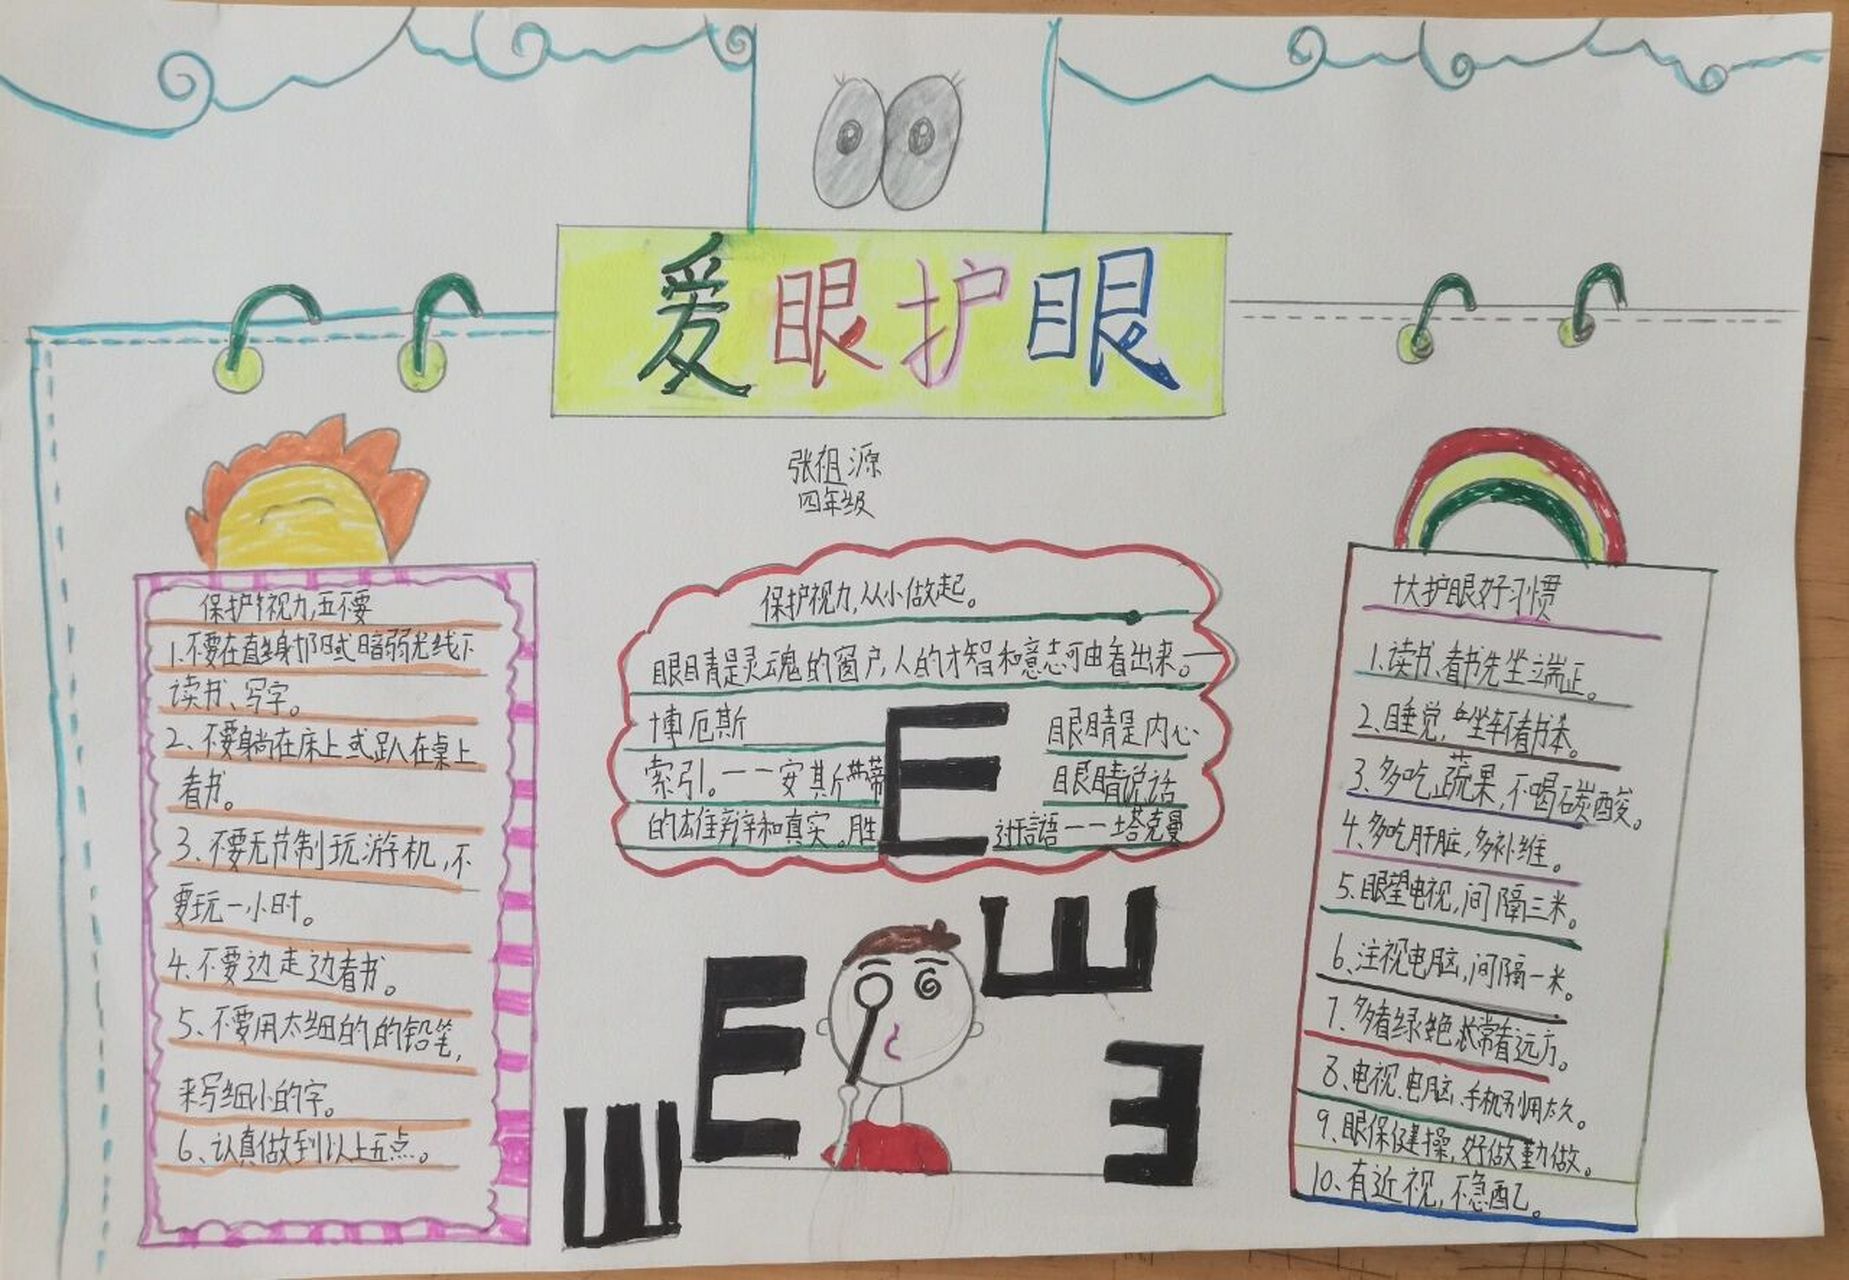 爱眼护眼
张祖源
四年级
保护视力,五不要
1、不要在直射阳或暗弱光线下
读书、写字。
2、不要躺在床上或趴在桌上
看书。
3、不要无节制玩游机,不
要玩一小时。
4、不要边走边看书。
5、不要用太细的的铅笔,
来写细小的字。
6、认真做到以上五点。
保护视力,从小做起。
眼睛是灵魂的窗户,人的才智和意志可由看出来。一
博厄斯
眼睛是内心
索引。一一安斯蒂
眼睛说话
的雄辩和真实。胜
过言語一一塔克曼
E
E
E
E
E
十大护眼好习惯
1、读书、看书先坐端正。
2、睡觉,坐车不看书本。
3、多吃蔬果,不喝碳酸。
4、多吃肝脏,多补维。
5、眼望电视,间隔三米。
6、注视电脑,间隔一米。
7、多看绿色,常看远方。
8、电视、电脑、手机别用太久。
9、眼保健操,好做勤做。
10、有近视,不急配。